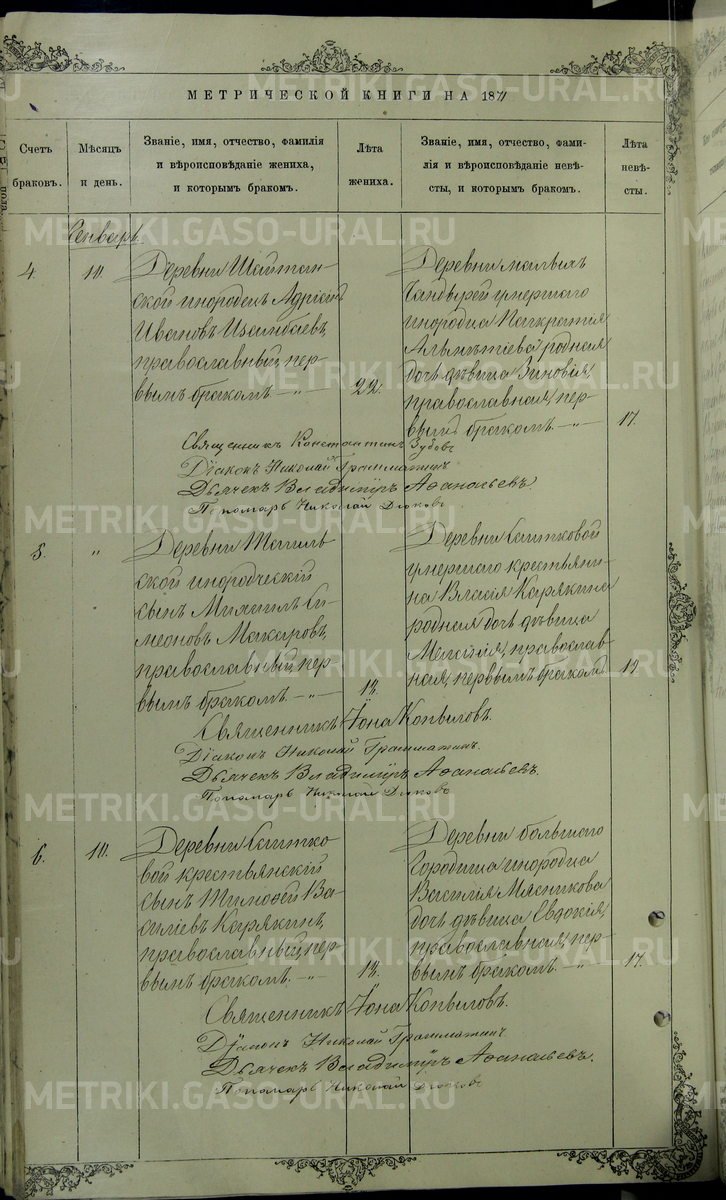 МЕТРИЧЕСКОЙ КНИГИ НА 1871
Счетъ браковъ.
Мѣсяцъ и день.
Званіе, имя, отчество, фамилія
и вѣроисповѣданіе жениха,
и которымъ бракомъ.
Лѣта жениха.
Званіе, имя, отчество, фами-
лія и вѣроисповѣданіе невѣ-
сты, и которымъ бракомъ.
Лѣта невѣ-
сты.
Генварь.
4.
10.
Деревни Шайтан-
ской инородецъ Адріанъ
Ивановъ Исанбаевъ,
православный, пер-
вымъ бракомъ. — „ —
22.
Деревни малыхъ
умершаго
инородца Панкратія
родная
дочь дѣвица Зиновія,
православная, пер-
вымъ бракомъ. — „ —
17.
Священникъ Константинъ Зубовъ
Діаконъ Николай Грамматинъ
Дьячекъ Владиміръ Аѳанасьевъ.
Пономарь Николай Дюковъ
5.
„
Деревни
ской инородческій
сынъ Михаилъ Си-
меоновъ Макаровъ,
православный, пер-
вымъ бракомъ. — „ —
18.
Деревни Ситковой
умершаго крестьяни-
на Власія Карякина
родная дочь дѣвица
православ-
ная, первымъ бракомъ
19
Священникъ Іона Копыловъ.
Діаконъ Николай Грамматинъ.
Дьячекъ Владиміръ Аѳанасьевъ.
Пономарь Николай Дюковъ
6.
10.
Деревни Ситко-
вой крестьянскій
сынъ Тимоѳей Ва-
силіевъ Карякинъ,
православный, пер-
вымъ бракомъ. — „ —
18.
Деревни большаго
Городища инородца
Василія Мясникова
дочь дѣвица Евдокія,
православная, пер-
вымъ бракомъ. — „
17.
Священникъ Іона Копыловъ.
Діаконъ Николай Грамматинъ
Дьячекъ Владиміръ Аѳанасьевъ.
Пономарь Николай Дюковъ
METRIKI.GASO-URAL.RU
METRIKI.GASO-URAL.RU
METRIKI.GASO-URAL.RU
METRIKI.GASO-URAL.RU
METRIKI.GASO-URAL.RU
METRIKI.GASO-URAL.RU
METRIKI.GASO-URAL.RU
METRIKI.GASO-URAL.RU